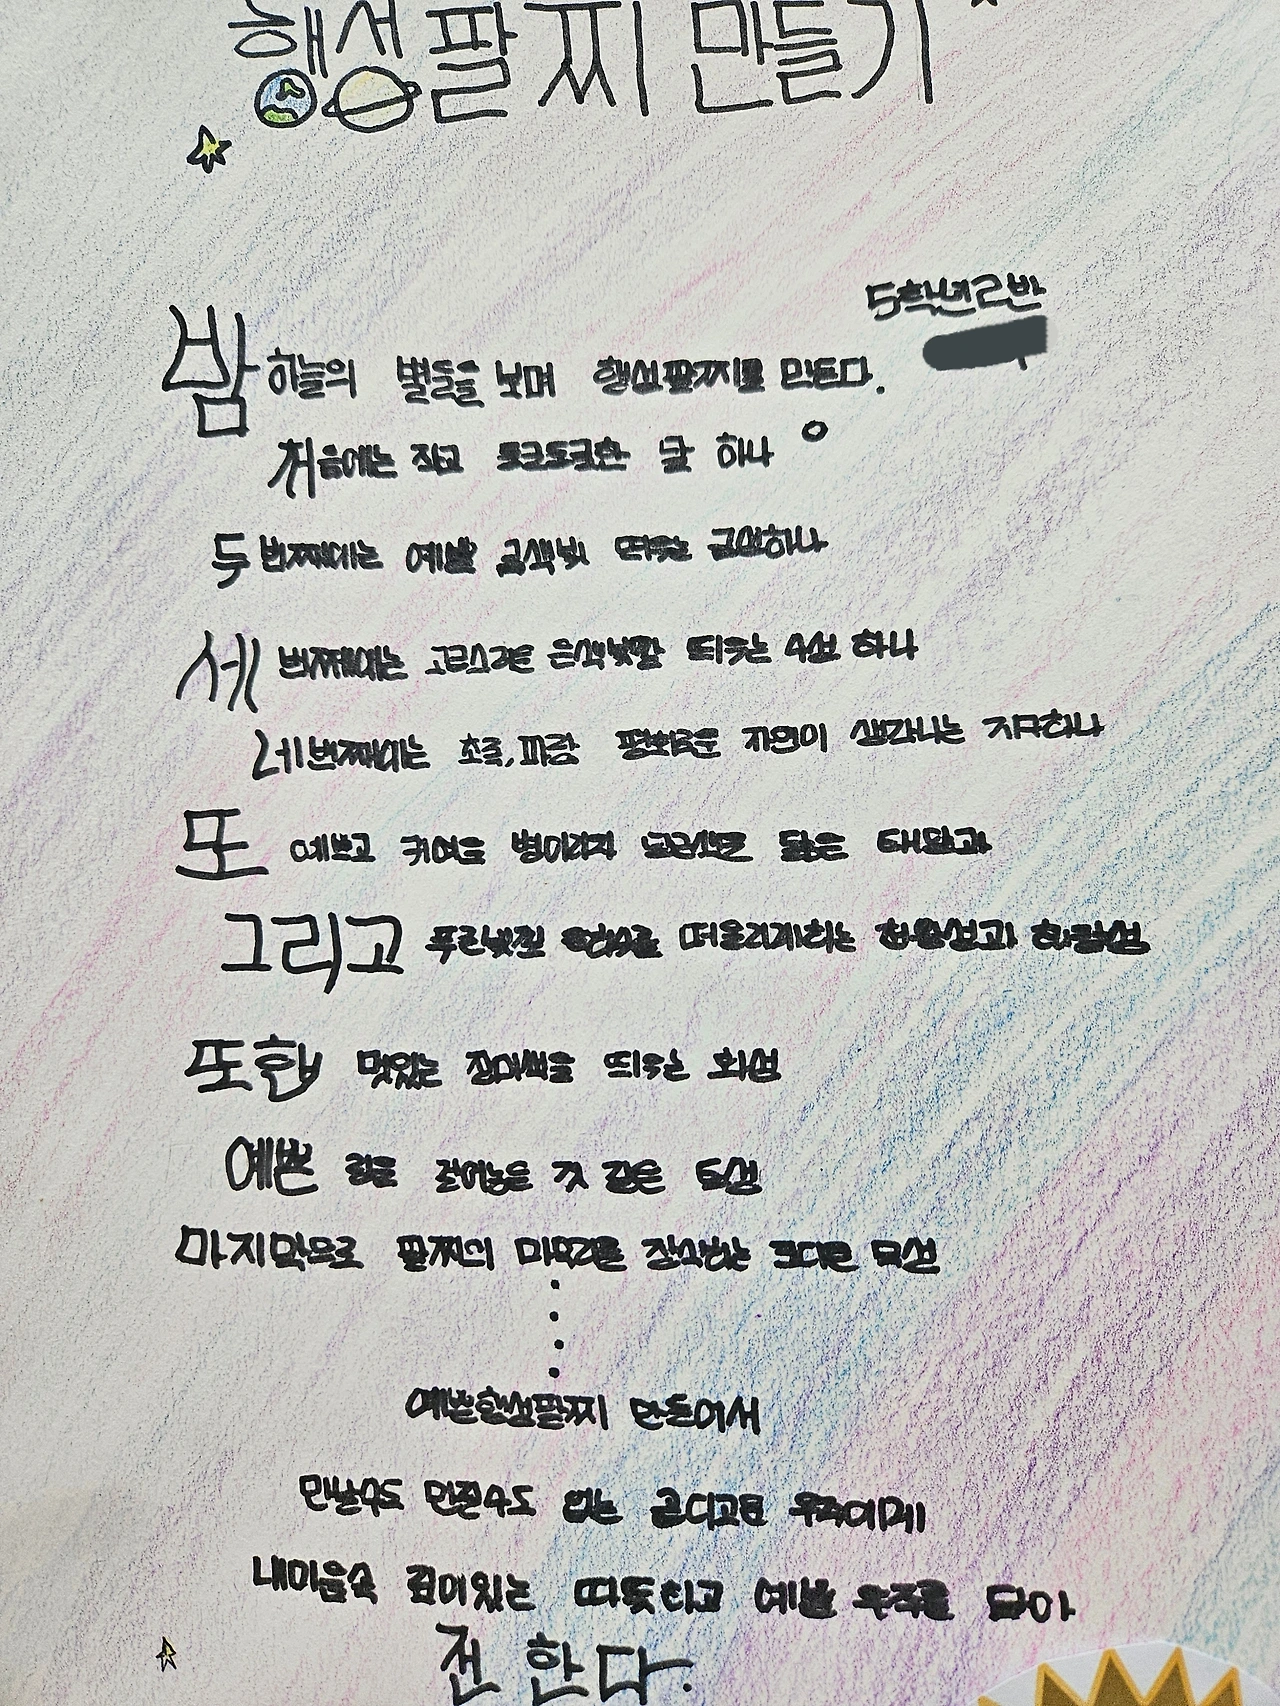 행성팔찌 만들기
5학년2반
밤하늘의 별들을 보며 행성팔찌를 만든다.
처음에는 작고 토크토크한 달 하나
두번째에는 예쁜 금색빛 띄우는 금성하나
세번째에는 고르스러운 은색빛깔 띄우는 수성 하나
네번째에는 초록,파랑 평화로운 자연이 생각나는 지구하나
또 예쁘고 귀여운 병아리지 노란색을 닮은 태양과
그리고 푸른빛 떠올리게하는 천왕성과 해왕성
또한 멋있는 장미색을 띄우는 화성
예쁜 링을 걸어놓은 것 같은 토성
마지막으로 팔찌의 마무리를 장식하는 커다란 목성
예쁜행성팔찌 만들어서
만날수도 만질수도 없는 크디고든 우주에게
내마음속 깊이있는 따듯하고 예쁜 우주를 담아
전한다.